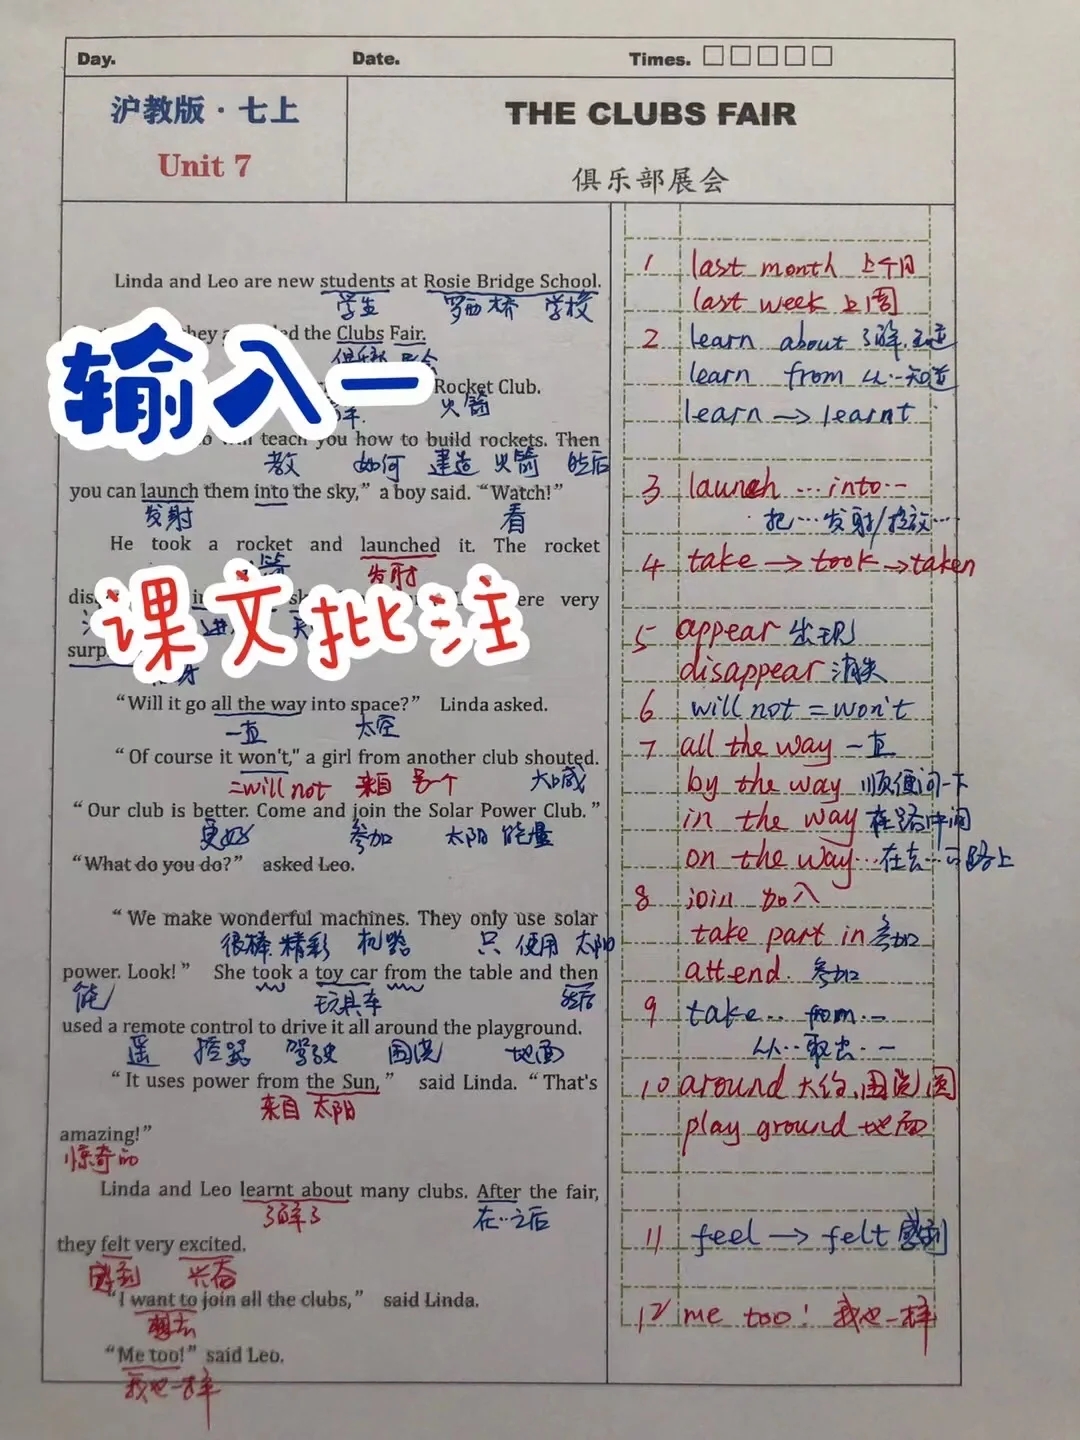 Day.
Date.
Times.
沪教版·七上
Unit 7
THE CLUBS FAIR
俱乐部展会
Linda and Leo are new students at Rosie Bridge School.
学生 罗西桥 学校
the Clubs Fair.
输入一
Rocket Club.
火箭
teach you how to build rockets. Then
教 如何 建造 火箭 然后
you can launch them into the sky,” a boy said. “Watch!”
发射 看
He took a rocket and launched it. The rocket
发射
very
课文批注
surp
“Will it go all the way into space?” Linda asked.
一直 太空
“Of course it won't," a girl from another club shouted.
=will not 来自 另一个 大喊
“Our club is better. Come and join the Solar Power Club.”
更好 参加 太阳 能量
“What do you do?” asked Leo.
“We make wonderful machines. They only use solar
很棒 精彩 机器 只 使用 太阳
power. Look!” She took a toy car from the table and then
能 玩具车 然后
used a remote control to drive it all around the playground.
遥 控器 驾驶 围绕 地面
“It uses power from the Sun,” said Linda. “That's
来自 太阳
amazing!”
惊奇的
Linda and Leo learnt about many clubs. After the fair,
了解了 在··之后
they felt very excited.
感到 兴奋
“I want to join all the clubs,” said Linda.
想去
“Me too!” said Leo.
我也一样
1 last month 上个月
last week 上周
2 learn about 了解.知道
learn from 从··知道
learn → learnt
3 launch ···into··
把···发射/投放···
4 take → took → taken
5 appear 出现
disappear 消失
6 will not = won't
7 all the way 一直
by the way 顺便问一下
in the way 在路中间
on the way···在去···的路上
8 join 加入
take part in 参加
attend. 参加
9 take·· from··
从··取出··
10 around 大约,围绕
play ground 地面
11 feel → felt 感到
12 me too! 我也一样